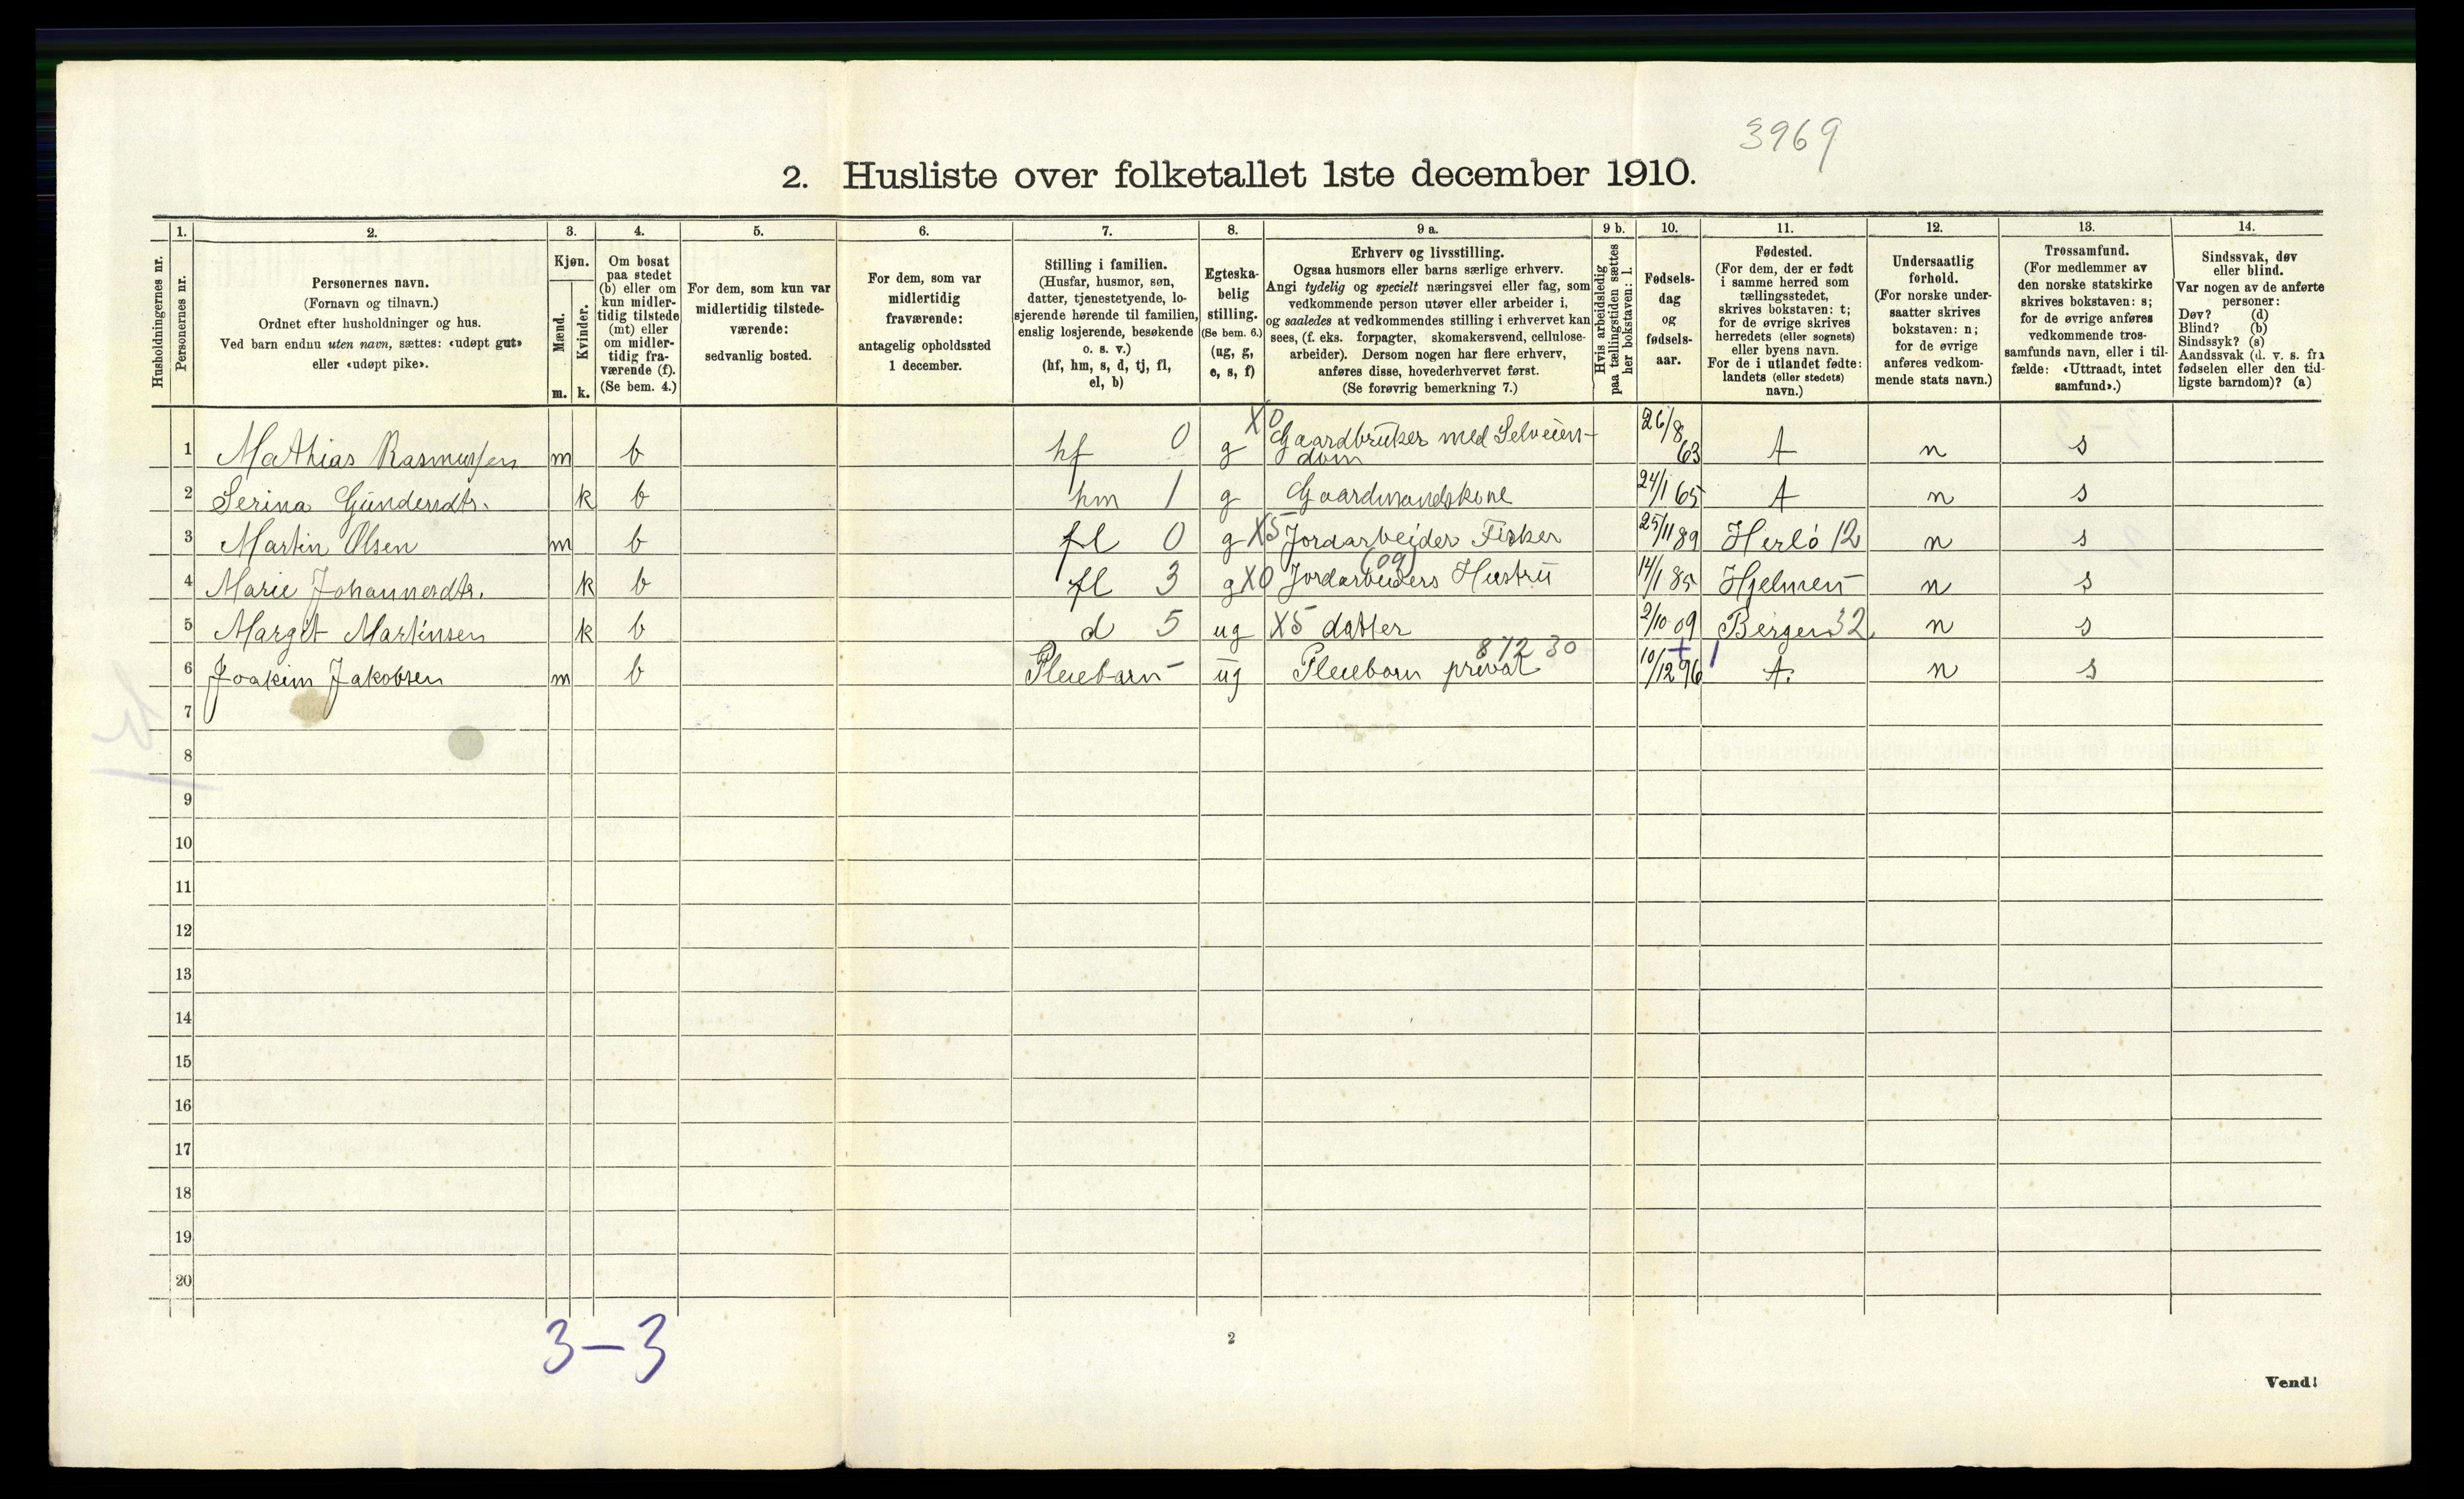 3969
2. Husliste over folketallet 1ste december 1910.
Husholdningernes nr.
1.
Personernes nr.
2.
Personernes navn.
(Fornavn og tilnavn.)
Ordnet efter husholdninger og hus.
Ved barn endnu uten navn, sættes: «udøpt gut»
eller «udøpt pike».
3.
Kjøn.
Mænd.
Kvinder.
m. k.
4.
Om bosat
paa stedet
(b) eller om
kun midler-
tidig tilstede
(mt) eller
om midler-
tidig fra-
værende (f).
(Se bem. 4.)
5.
For dem, som kun var
midlertidig tilstede-
værende:
sedvanlig bosted.
6.
For dem, som var
midlertidig
fraværende:
antagelig opholdssted
1 december.
7.
Stilling i familien.
(Husfar, husmor, søn,
datter, tjenestetyende, lo-
sjerende hørende til familien,
enslig losjerende, besøkende
o. s. v.)
(hf, hm, s, d, tj, fl,
el, b)
8.
Egteska-
belig
stilling.
(Se bem. 6.)
(ug, g,
e, s, f)
9 a.
Erhverv og livsstilling.
Ogsaa husmors eller barns særlige erhverv.
Angi tydelig og specielt næringsvei eller fag, som
vedkommende person utøver eller arbeider i,
og saaledes at vedkommendes stilling i erhvervet kan
sees, (f. eks. forpagter, skomakersvend, cellulose-
arbeider). Dersom nogen har flere erhverv,
anføres disse, hovederhvervet først.
(Se forøvrig bemerkning 7.)
9 b.
Hvis arbeidsledig
paa tællingstiden sættes
her bokstaven: l.
10.
Fødsels-
dag
og
fødsels-
aar.
11.
Fødested.
(For dem, der er født
i samme herred som
tællingsstedet,
skrives bokstaven: t;
for de øvrige skrives
herredets (eller sognets)
eller byens navn.
For de i utlandet fødte:
landets (eller stedets)
navn.)
12.
Undersaatlig
forhold.
(For norske under-
saatter skrives
bokstaven: n;
for de øvrige
anføres vedkom-
mende stats navn.)
13.
Trossamfund.
(For medlemmer av
den norske statskirke
skrives bokstaven: s;
for de øvrige anføres
vedkommende tros-
samfunds navn, eller i til-
fælde: «Uttraadt, intet
samfund».)
14.
Sindssvak, døv
eller blind.
Var nogen av de anførte
personer:
Døv? (d)
Blind? (b)
Sindssyk? (s)
Aandssvak (d. v. s. fra
fødselen eller den tid-
ligste barndom)? (a)
1 Mathias Rasmussen m b hf 0 g X0 Gaardbruker med Selveien-
dom 26/8 63 t n s
2 Serina Gundersdtr. k b hm 1 g Gaardmandskone 24/1 65 t n s
3 Martin Olsen m b fl 0 g X5 Jordarbejder (og) Fisker 25/11 89 Herlö 12 n s
4 Marie Johannesdtr. k b fl 3 g X0 Jordarbeiders Hustru 14/1 85 Hjelmen n s
5 Margit Martinsen k b d 5 ug X5 datter 2/10 09 Bergen 32 n s
872 30 + 1
6 Joakim Jakobsen m b Pleiebarn - ug Pleiebarn privat 10/12 96 t. n s
7
8
9
10
11
12
13
14
15
16
17
18
19
20
3-3
2
Vend!